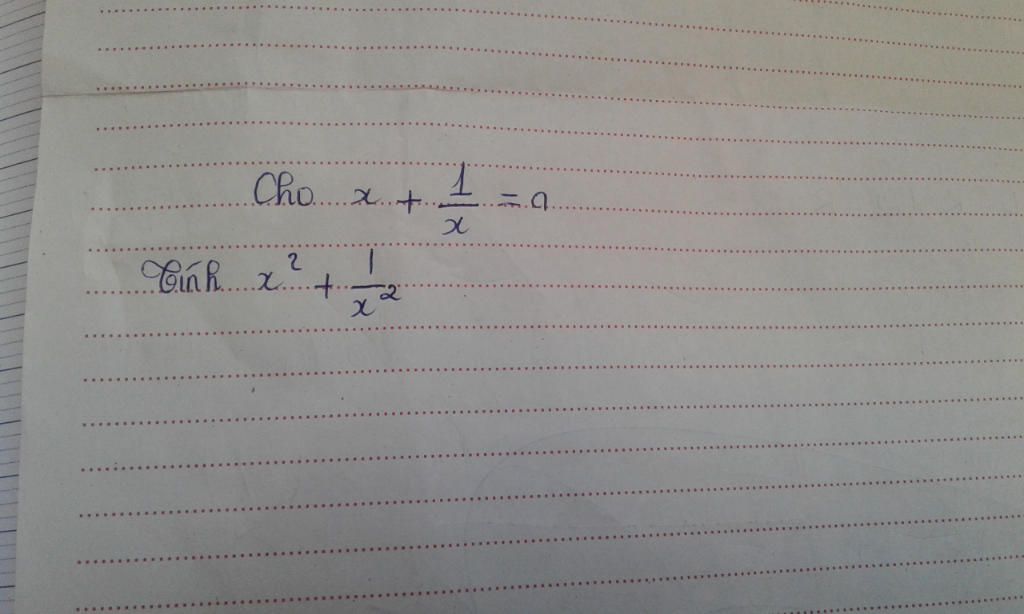 Cho x + 1/x = a
Tính x² + 1/x²